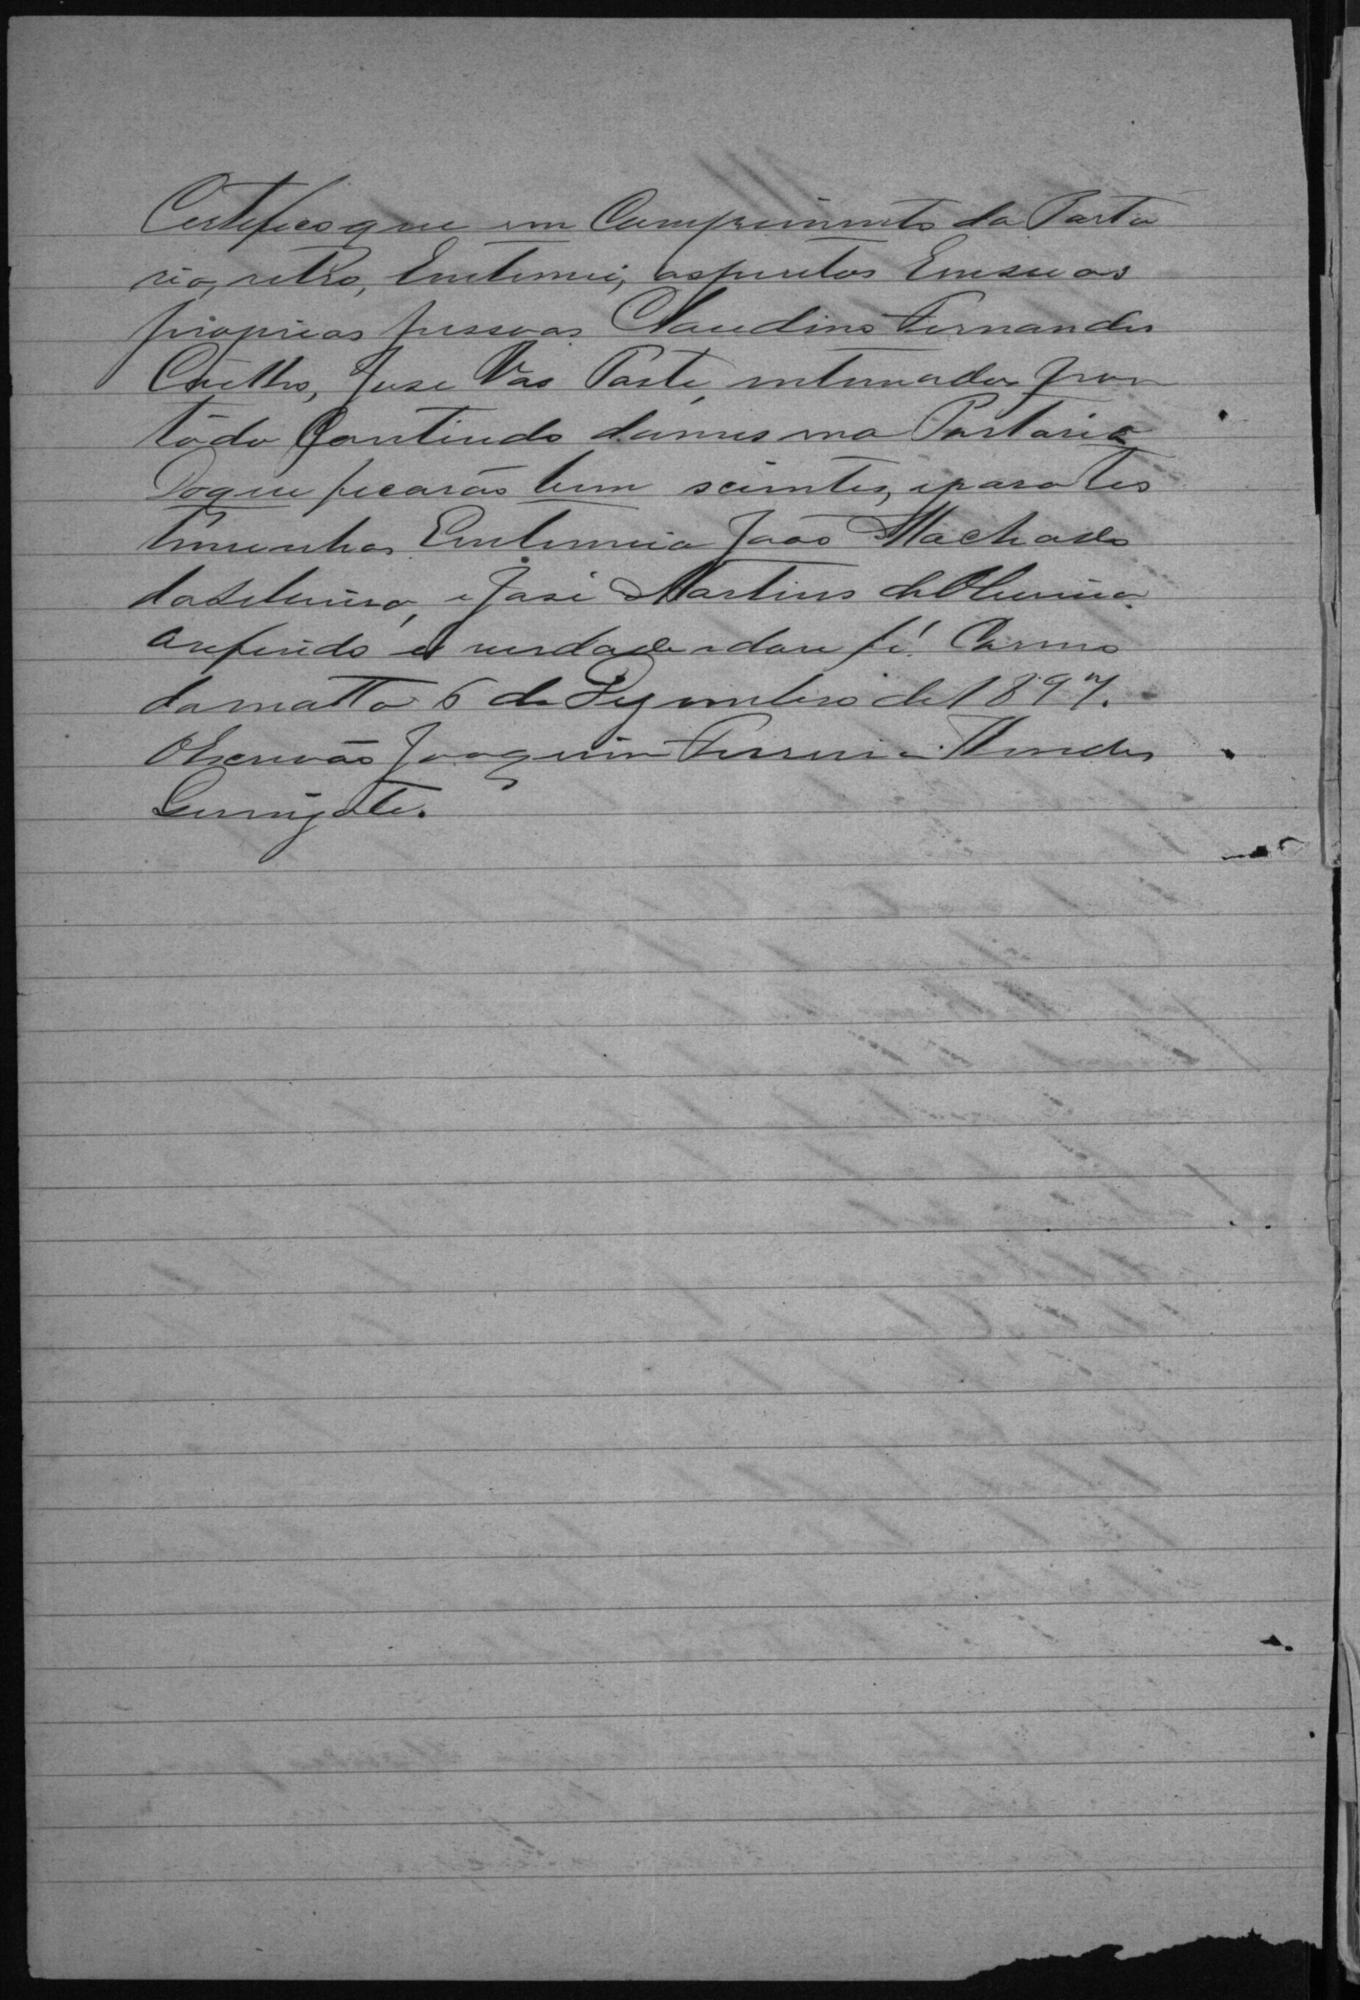 Certifico que em Cumprimento da Porta
ria, retro, Entimei, aspeutos Emsuas
propias pessoas Claudino Fernandes
Coelho, Jose Vas Porte, intimados por
todo Contiudo damesma Portaria
Doque ficarão bem scientes, eparates
timunhas Entimeia João Machado
dasilveira, e José Martins de Oliveira
oreferido é verdade edou fé. Carmo
damatta 6 de Dezembro de 1897.
OEscrivão Joaquim Ferreira Mendes